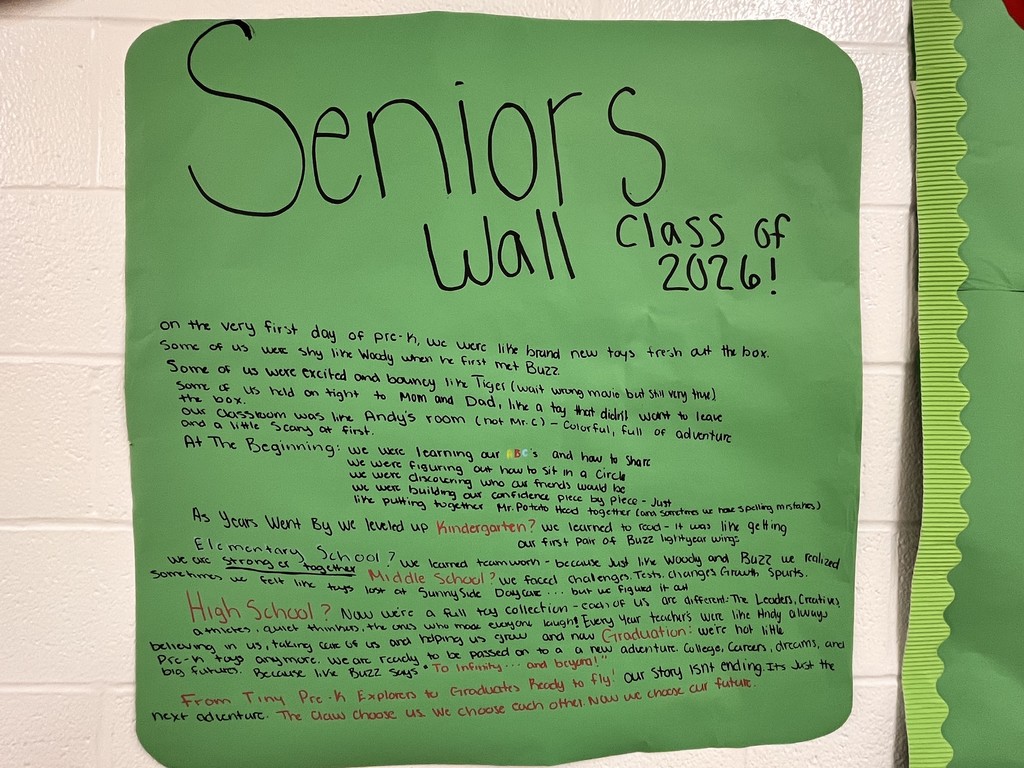 Seniors
Wall
Class of
2026!
on the very first day of pre-k, we were like brand new toys fresh out the box.
Some of us were shy like Woody when he first met Buzz
Some of us were excited and bouncy like Tiger (wait wrong movie but still very true)
Some of us held on tight to Mom and Dad, like a toy that didn't want to leave
the box.
our classroom was like Andy's room (not Mr. C) - Colorful, full of adventure
and a little scary at first.
At The Beginning: we were learning our ABC's and how to share
we were figuring out how to sit in a circle
we were discovering who our friends would be
we were building our confidence piece by piece - Just
like putting together Mr. Potato Head together (and sometimes we have spelling mistakes)
As Years Went By we leveled up Kindergarten? we learned to read - it was like getting
our first pair of Buzz lightyear wings
Elementary School? we learned teamwork - because Just like Woody and Buzz we realized
we are stronger together
sometimes we felt like toys lost at SunnySide Daycare... but we figured it out
Middle School? we faced challenges. Tests. changes. Growth Spurts.
High School? Now we're a full toy collection - each of us are different: The Leaders, Creatives,
athletes, quiet thinkers, the ones who make everyone laugh! Every Year teachers were like Andy always
believing in us, taking care of us and helping us grow and now Graduation: we're not little
Pre-K toys anymore. We are ready to be passed on to a a new adventure. College, Careers, dreams, and
big futures. Because like Buzz says "To Infinity... and beyond!"
From Tiny Pre-k Explorers to Graduates Ready to fly! our story isn't ending. It's Just the
next adventure. The Claw choose us. We choose each other. Now we choose our future.